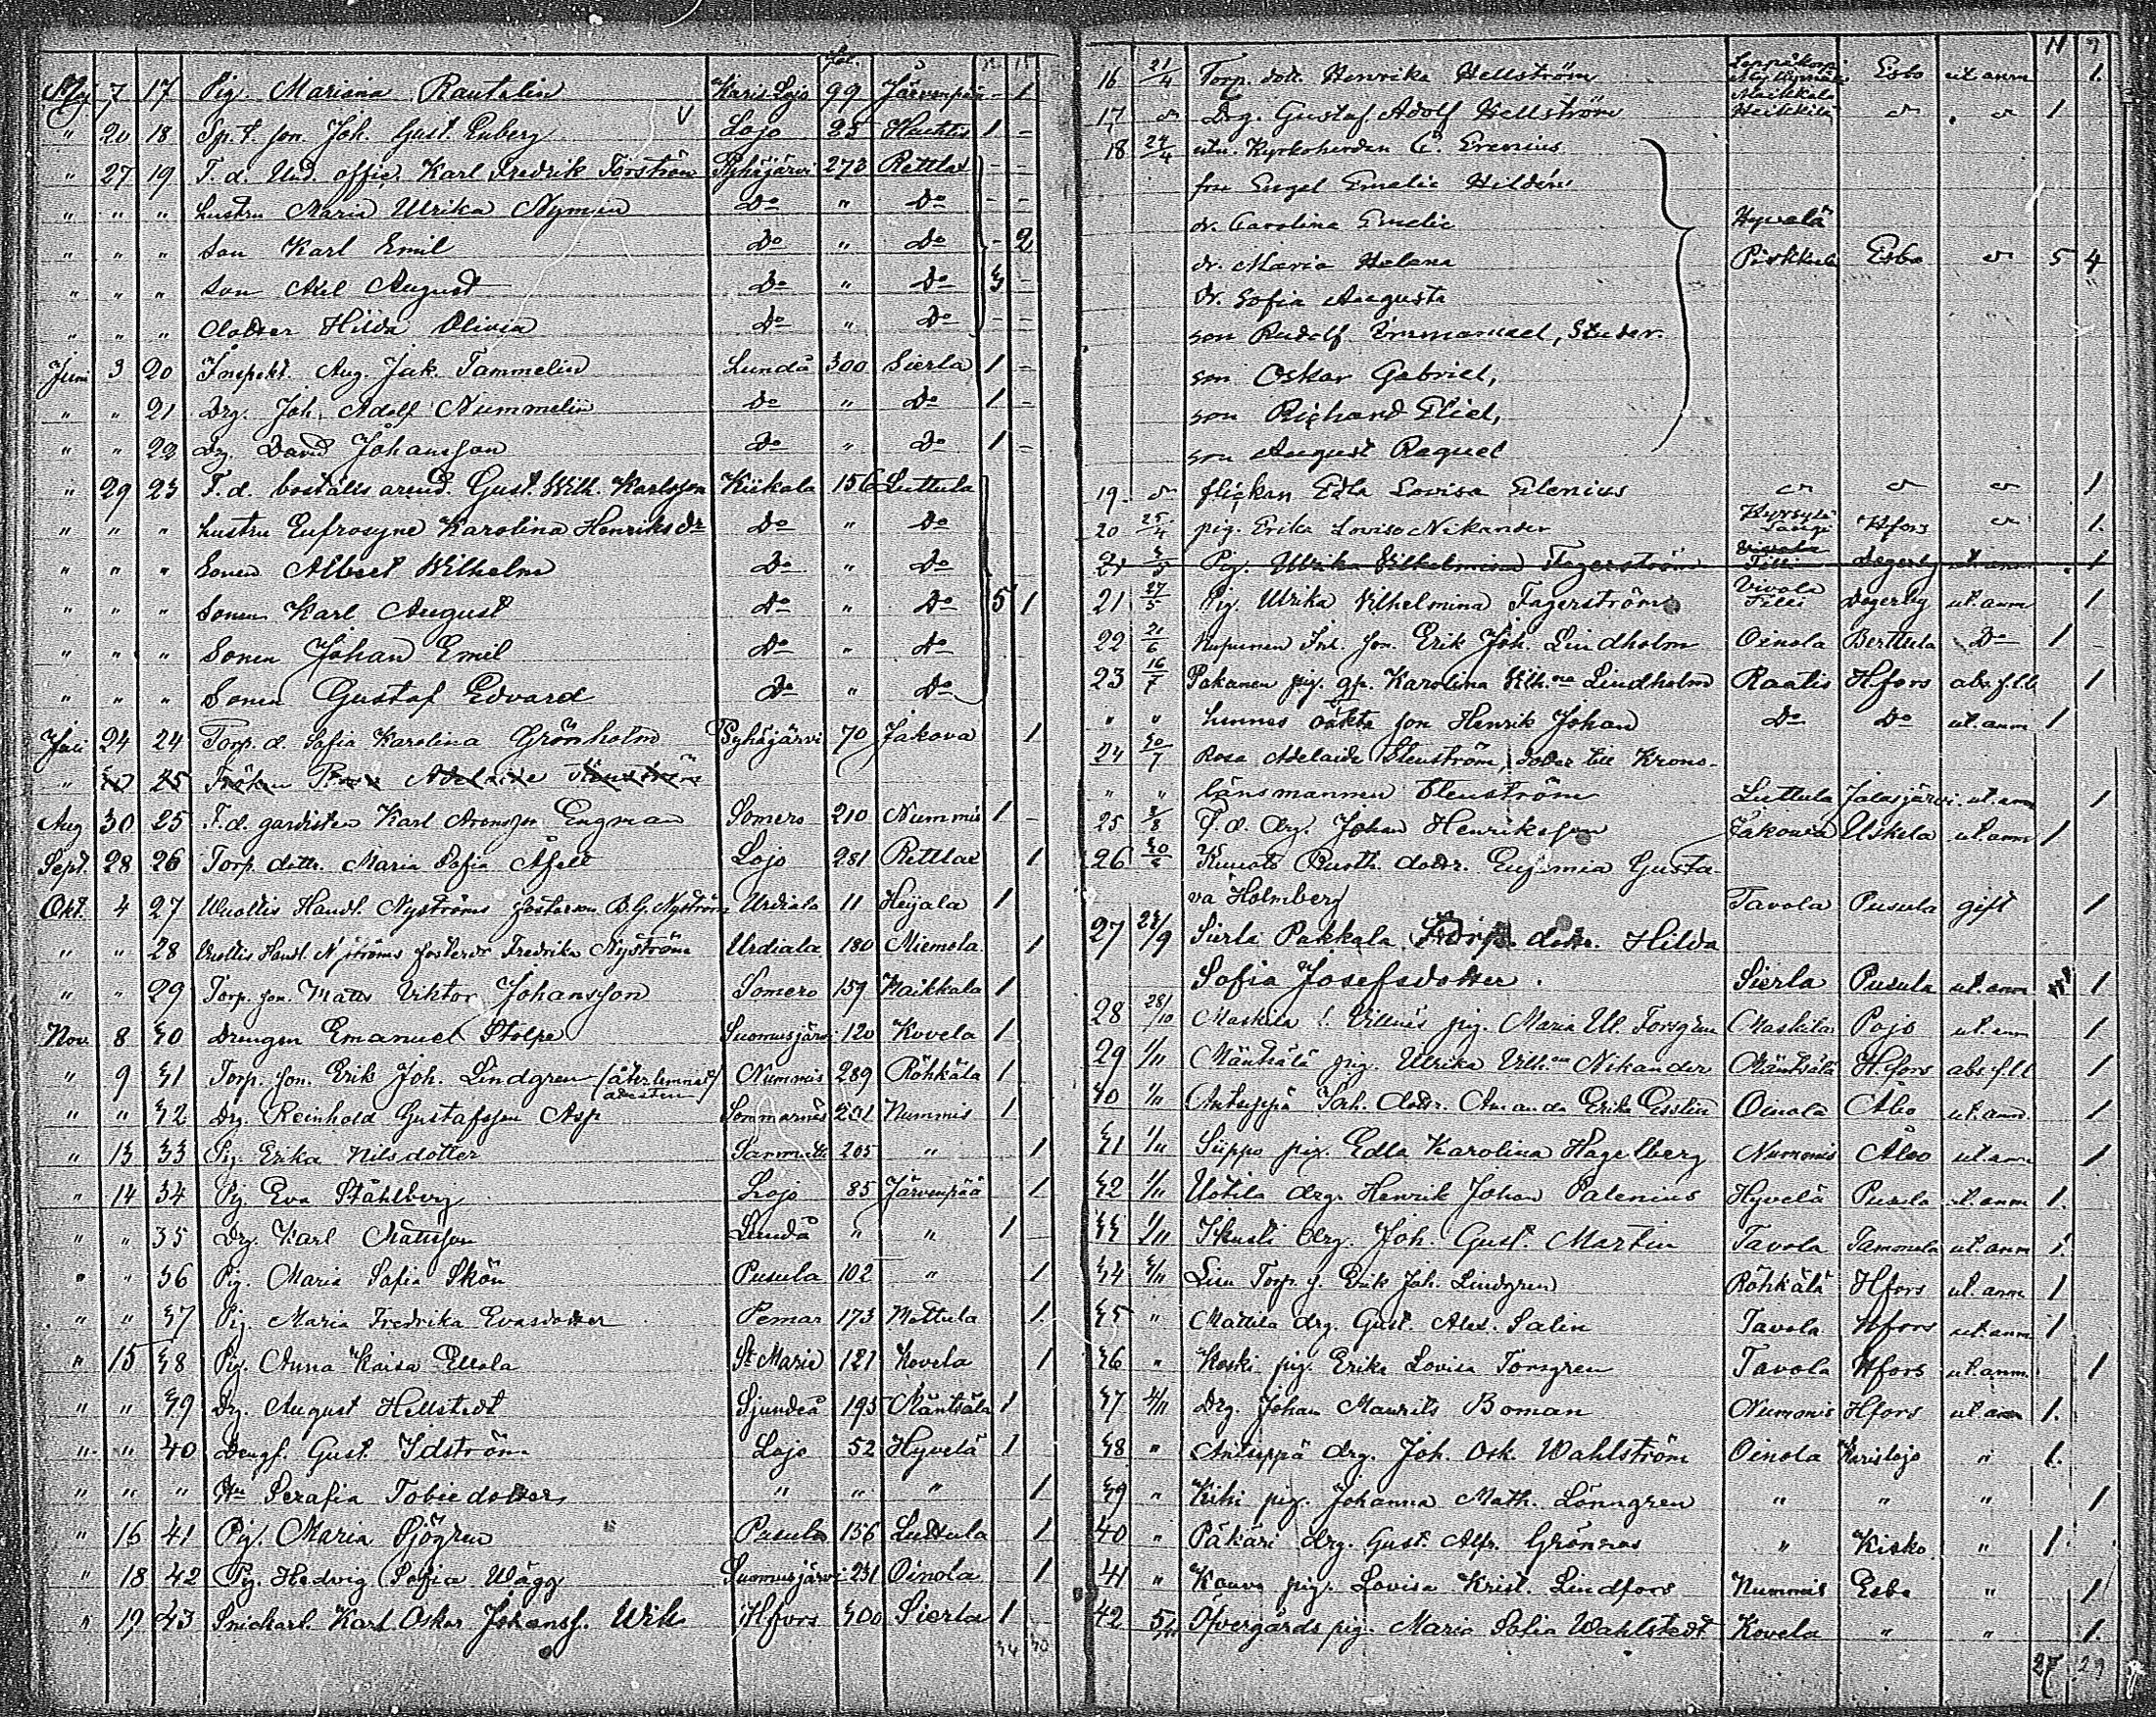 Fol.
Maj 7 17 Pig. Mariana Rautelin Karis Lojo 99 Järvenpää - 1
" 20 18 Sp. t. son Joh. Gust. Enberg Lojo 25 1 -
" 27 19 F. d. Und. offic. Karl Fredrik Törström Pyhäjärvi 273 Rettlax - -
" " " hustru Maria Ulrika Nyman Do " Do - -
" " " son Karl Emil Do " Do - 2
" " " son Axel August Do " Do 3 -
" " " dotter Hilda Olivia Do " Do - -
Juni 3 20 Inspekt. Aug. Jak. Tammelin Lundå 300 Sierla 1 -
" " 21 Drg. Joh. Adolf Nummelin Do " Do 1 -
" " 22 Drg. David Johansson Do " Do 1 -
" 29 23 F. d. boställs arend. Gust. Wilh. Karlsson Kiikala 156 Luttula
" " " hustru Eufrosyne Karolina Henriksdr Do " Do
" " " Sonen Albert Wilhelm Do " Do
" " " Sonen Karl August Do " Do 5 1
" " " Sonen Johan Emil Do " Do
" " " Sonen Gustaf Edvard Do " Do
Juli 24 24 Torp. d. Sofia Karolina Grönholm Pyhäjärvi 70 Jakova 1
" 25 Fröken Rosa Adelaide Stenström
Aug 30 25 F. d. gardisten Karl Aronsson Engman Somero 210 Nummis 1 -
Sept. 28 26 Torp. dottr. Maria Sofia Lojo 281 Rettlax 1
Okt. 4 27 Uuottis Handl. Nyströms fosterson B. G. Nyström Urdiala 11 Heijala 1
" " 28 Uuottis Handl. Nyströms fosterdr Fredrika Nyström Urdiala 180 Miemola 1
" " 29 Torp. son. Matts Viktor Johansson Somero 159 Maikkala 1
Nov. 8 30 Drengen Emanuel Stolpe Suomusjärvi 120 Kovela 1
" 9 31 Torp. son. Erik Joh. Lindgren (återlemnat attesten) Nummis 289 Röhkälä 1
" " 32 Drg. Reinhold Gustafsson Asp Sommarnäs 202 Nummis 1
" 13 33 Pig. Erika Nilsdotter Sammatti 205 " 1
" 14 34 Pig Eva Ståhlberg Lojo 85 Järvenpää 1
" " 35 Drg. Karl Mattsson Lundå " " 1
" " 36 Pig. Maria Sofia Skön Pusula 102 " 1
" " 37 Pig. Maria Fredrika Evasdotter Pemar 173 Mettula 1
" 15 38 Pig. Anna Kaisa Ellola St Marie 121 Kovela 1
" " 39 Drg. August Hellstedt Sjundeå 195 Mäntsälä 1
" " 40 Drengs. Gust. Idström Lojo 52 Hyvelä 1
" " " Hu Serafia Tobiedotter " " " 1
" 16 41 Pig. Maria Sjögren Pusula 156 Luttula 1
" 18 42 Pig. Hedvig Sofia Wägg Suomusjärvi 231 Oinola 1
" 19 43 Snickarl. Karl Oskar Johanss. Wik Hfors 300 Sierla 1
34 30
16 21/4 Torp. dott. Henrika Hellström Leppäkorpi Esbo ut. anm 1.
17 " Drg. Gustaf Adolf Hellström Maikkala Heikkilä " " 1
18 24/4 utn. Kyrkoherden C. Grenius
fru Engel Emelie Hildéns
dr. Carolina Emelie Hyvelä
dr. Maria Helena Pirkkula Esbo " 5 4
dr. Sofia Augusta
son Rudolf Immanuel, Studer.
son Oskar Gabriel,
son Richard Eliel,
son August Raguel
19 " flickan Edla Lovisa Elenius " " " 1
20 25/4 pig. Erika Lovisa Nikander Hfors " 1.
21 Pig. Ulrika Vilhelmina Fagerström Vivola Filli Degerby ut. anm 1
21 27/5 Pig. Ulrika Vilhelmina Fagerström Vivola Filli Degerby ut. anm 1
22 21/6 Inl. son. Erik Joh. Lindholm Oinola Berttula Do 1 -
23 16/7 Pakanen pig. gp. Karolina Wilh.na Lindholm Raatis Hfors abs. f. l. b. 1
" " hennes oäkta son Henrik Johan Do Do ut. anm 1
24 30/7 Rosa Adelaide Stenström, dotter till Krono-
" " länsmannen Stenström Luttula Jalasjärvi ut. anm 1
25 3/8 F. d. drg. Johan Henriksson Jakowa Uskela ut. anm 1
26 Rusth. dottr. Eugenia Gusta-
va Holmberg Tavola Pusula gift 1
27 28/9 Sierla Pakkala Torp. dottr. Hilda
Sofia Josefsdotter. Sierla Pusula ut. anm 1
28 28/10 Maskila pig. Maria Ul. Forsgren Maskila Pojo ut. anm 1
29 1/11 Mäntsälä pig. Ulrika Vilh.na Nikander Mäntsälä H.fors abs. f. l. 1
30 1/11 Antseppä dottr. Amanda Erika Esslin Oinola Åbo ut. anm. 1
31 1/11 Siippo pig. Edla Karolina Hagelberg Nummis Åbo ut anm 1
32 1/11 Uotila drg. Henrik Johan Palenius Hyvelä Pusula ut. anm 1.
33 1/11 Drg. Joh. Gust. Martin Tavola ut. anm 1.
34 Lisu Torp. s. Erik Joh. Lindgren Röhkälä Hfors ut. anm. 1
35 " Mattila drg. Gust. Alex. Salin Tavola Hfors ut. anm 1
36 " Koski pig. Erika Lovisa Törngren Tavola Hfors ut. anm. 1
37 4/11 Drg. Johan Maurits Boman Nummis Hfors ut. anm 1.
38 " Antseppä drg. Joh. Osk. Wahlström Oinola Karislojo " 1.
39 " Kihi pig. Johanna Math. Lönngren " " " 1
40 " Päkäri drg. Gust. Alfr. Grönroos " Kisko " 1.
41 " Kouvo pig. Lovisa Krist. Lindfors Nummis Esbo " 1
42 5/11 Öfvergårds pig. Maria Sofia Wahlstedt Kovela " " 1.
27 29